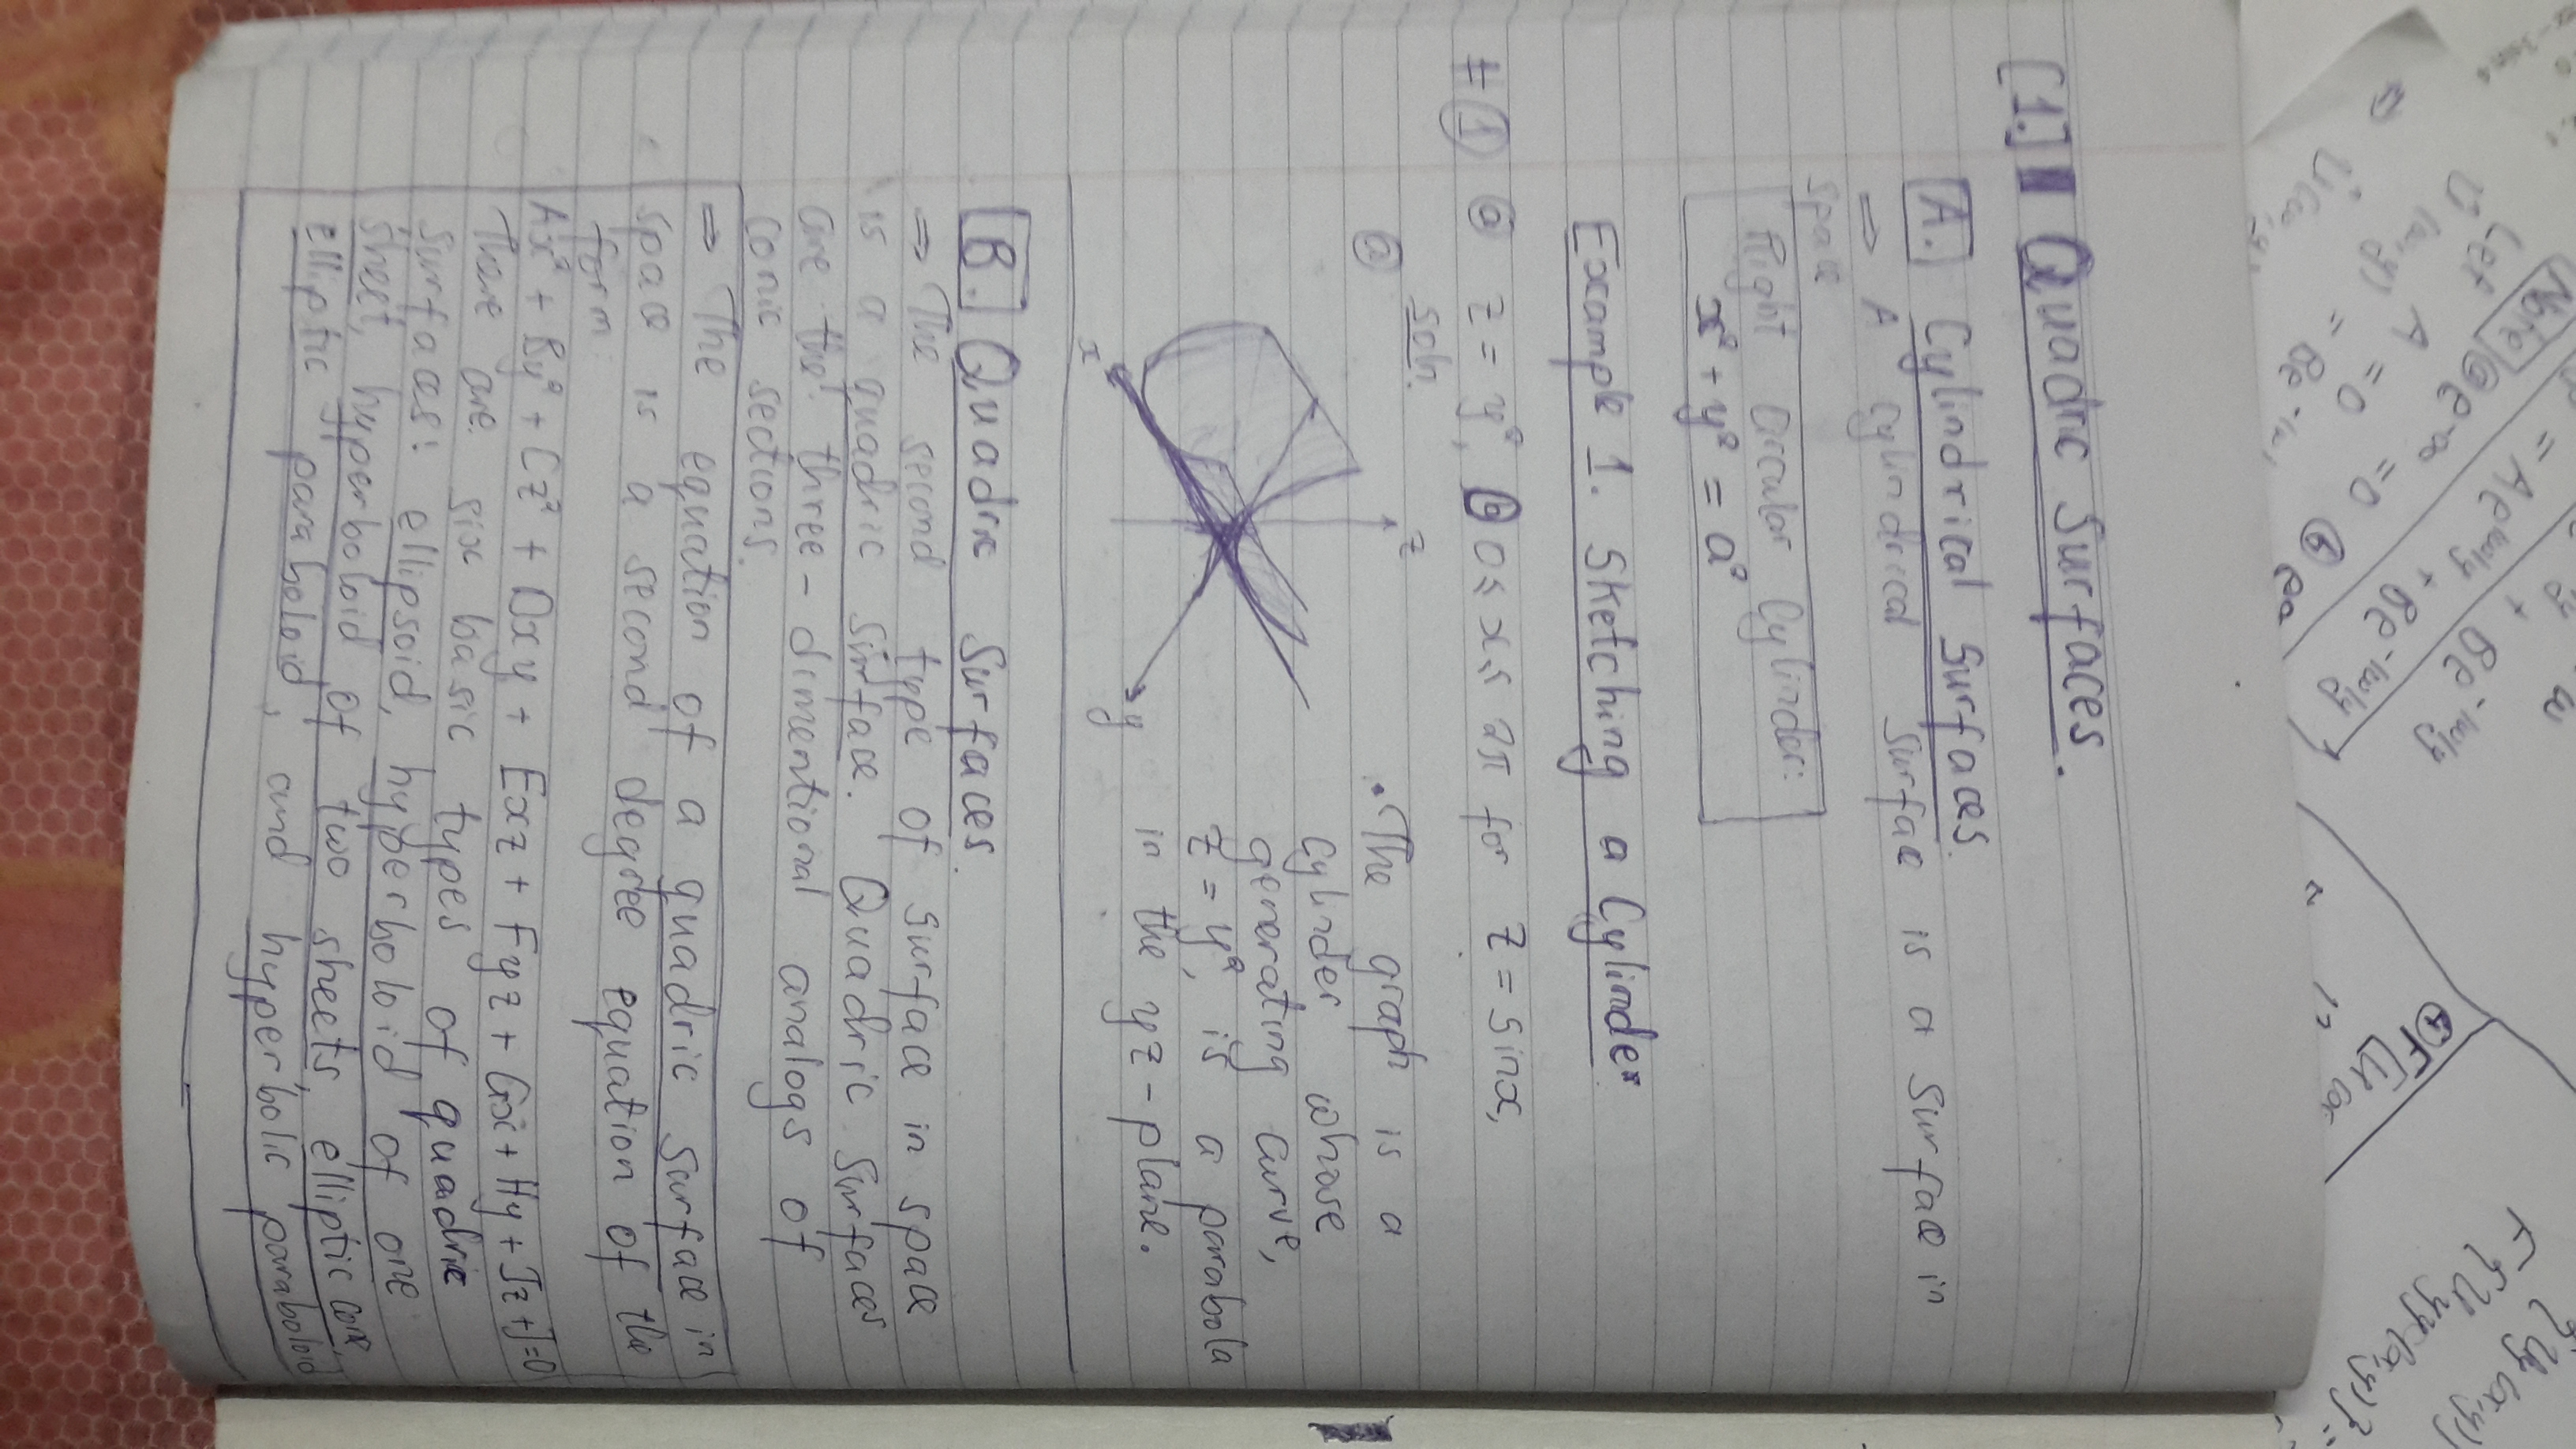 [1.] Quadric Surfaces.
[A.] Cylindrical Surfaces.
⇒ A Cylindrical surface is a surface in
space
Right Circular Cylinder:
x² + y² = a²
Example 1. Sketching a Cylinder
# ① ⓐ z = y², ⓑ 0 ≤ x ≤ 2π for z = sinx,
Soln.
ⓐ
z
x
y
• The graph is a
Cylinder whose
generating curve,
z = y², is a parabola
in the yz-plane.
[B.] Quadric Surfaces.
⇒ The second type of surface in space
is a quadric surface. Quadric surfaces
are the three-dimentional analogs of
conic sections.
⇒ The equation of a quadric surface in
space is a second degree equation of the
form:
Ax² + By² + Cz² + Dxy + Exz + Fyz + Gx + Hy + Iz + J = 0
There are six basic types of quadric
surfaces: ellipsoid, hyperboloid of one
sheet, hyperboloid of two sheets, elliptic cone,
elliptic paraboloid, and hyperbolic paraboloid
Note